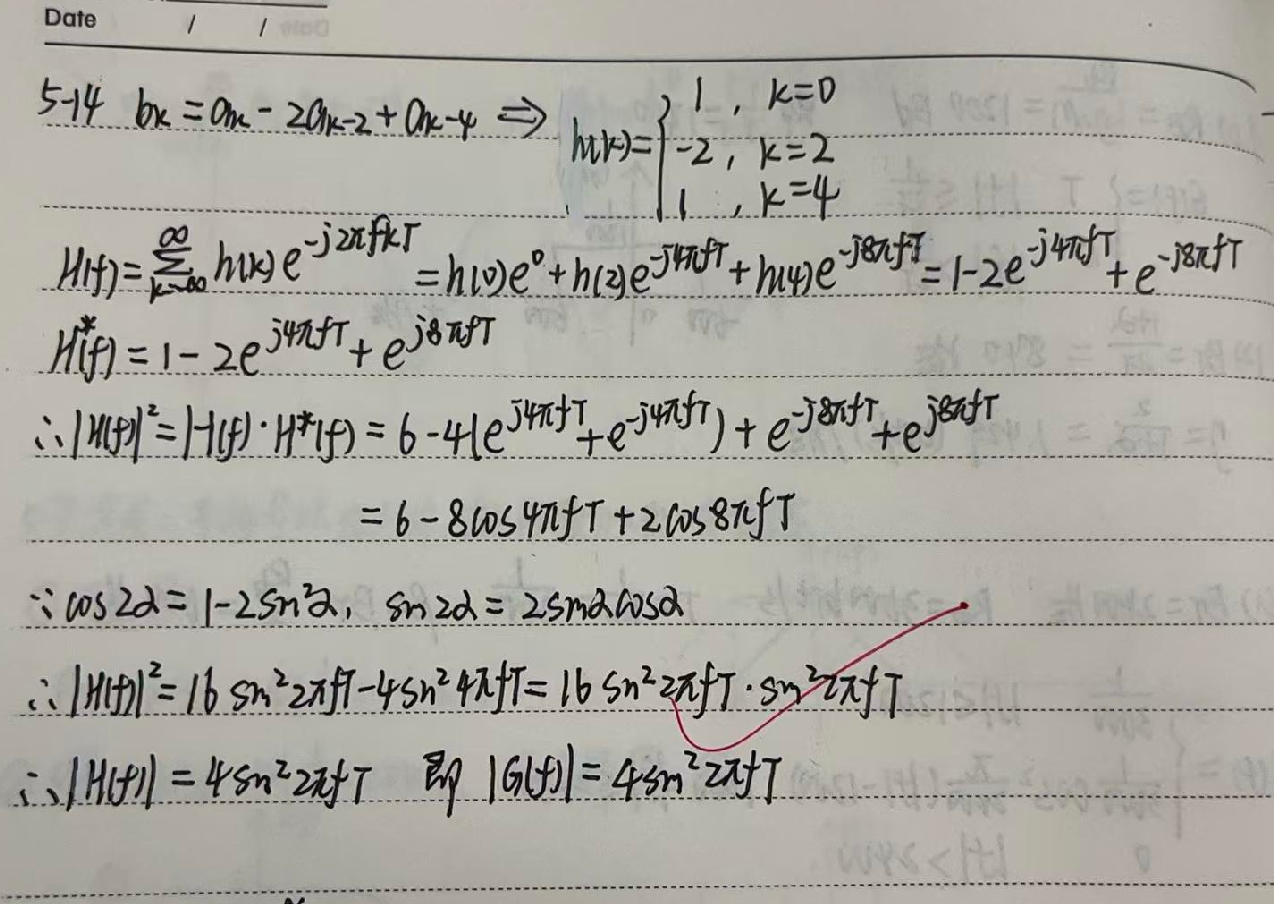 Date / /
5-14 bₖ = aₖ - 2aₖ₋₂ + aₖ₋₄ ⇒ h(k) = { 1, k=0
-2, k=2
1, k=4
H(f) = ∑_{k=-∞}^{∞} h(k) e^{-j2πfkT} = h(0)e⁰ + h(2)e^{-j4πfT} + h(4)e^{-j8πfT} = 1-2e^{-j4πfT} + e^{-j8πfT}
H*(f) = 1 - 2e^{j4πfT} + e^{j8πfT}
∴ |H(f)|² = H(f)·H*(f) = 6 - 4(e^{j4πfT} + e^{-j4πfT}) + e^{-j8πfT} + e^{j8πfT}
= 6 - 8cos4πfT + 2cos8πfT
∵ cos2α = 1-2sin²α, sin2α = 2sinαcosα
∴ |H(f)|² = 16 sin²2πfT - 4sin²4πfT = 16 sin²2πfT · sin²2πfT
∴ |H(f)| = 4sin²2πfT 即 |G(f)| = 4sin²2πfT